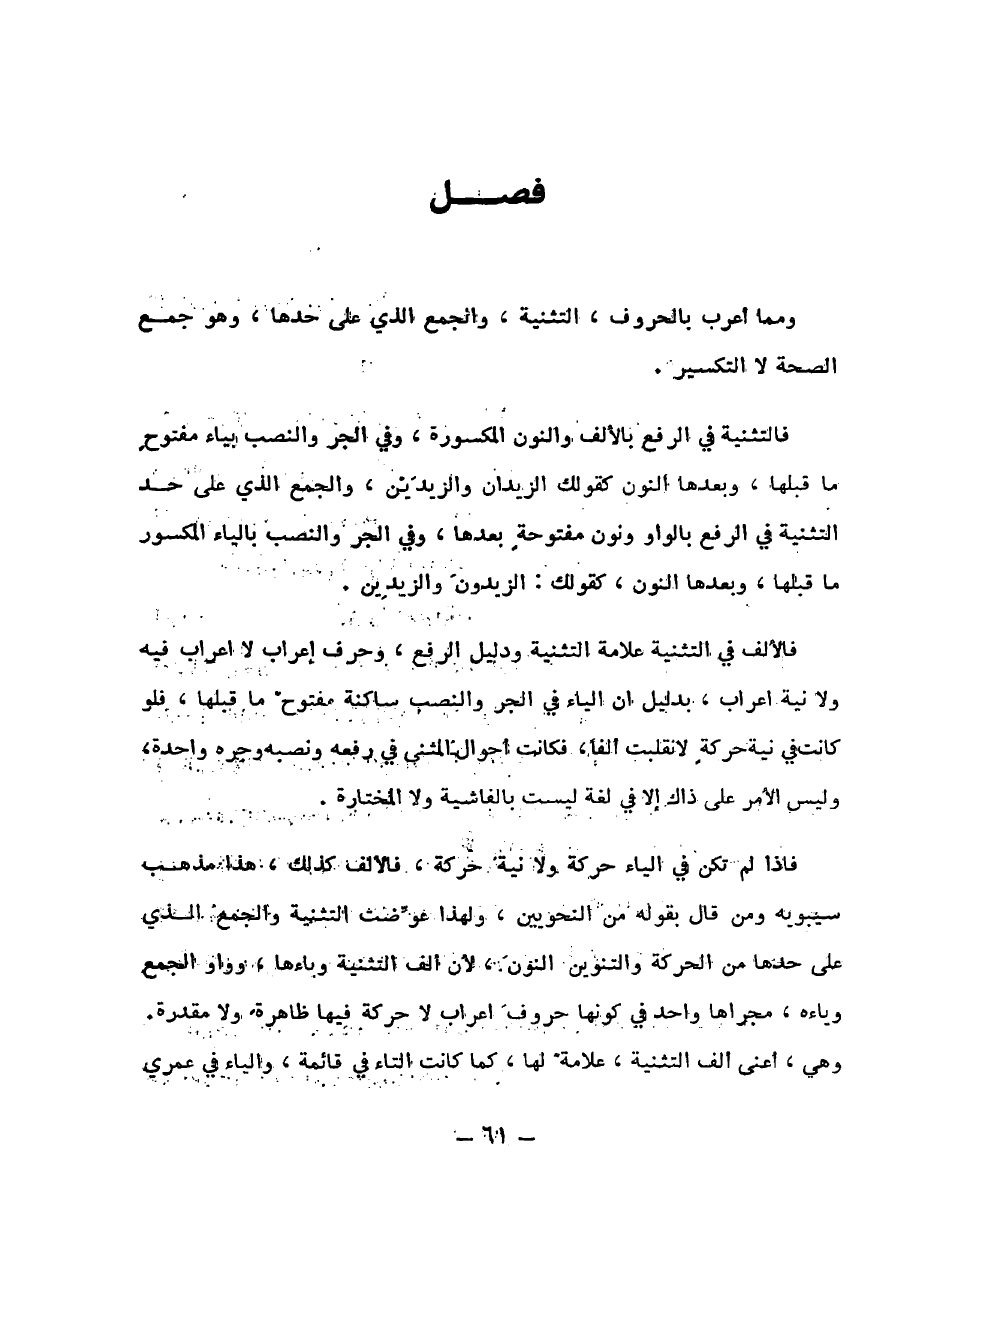 فصــــل
ومما أعرب بالحروف ، التثنية ، والجمع الذي على حدها ، وهو جمــع
الصحة لا التكسير .
فالتثنية في الرفع بالألف والنون المكسورة ، وفي الجر والنصب بياء مفتوحٍ
ما قبلها ، وبعدها النون كقولك الزيدان والزيدَيْن ، والجمع الذي على حــد
التثنية في الرفع بالواو ونون مفتوحةٍ بعدها ، وفي الجر والنصب بالياء المكسور
ما قبلها ، وبعدها النون ، كقولك : الزيدونَ والزيدِين .
فالألف في التثنية علامة التثنية ودليل الرفع ، وحرف إعراب لا اعراب فيه
ولا نية اعراب ، بدليل ان الياء في الجر والنصب ساكنة مفتوحٌ ما قبلها ، فلو
كانت في نية حركةٍ لانقلبت ألفاً ، فكانت أحوال المثنى في رفعه ونصبه وجره واحدة ،
وليس الأمر على ذاك إلا في لغة ليست بالفاشية ولا المختارة .
فاذا لم تكن في الياء حركة ولا نيةُ حركة ، فالألف كذلك ، هذا مذهــب
سيبويه ومن قال بقوله من النحويين ، ولهذا عوّضت التثنية والجمع الــذي
على حدها من الحركة والتنوين النون ، لأن الف التثنية وياءها ، وواو الجمع
وياءه ، مجراها واحد في كونها حروفَ اعراب لا حركة فيها ظاهرة ولا مقدرة .
وهي ، أعنى ألف التثنية ، علامةٌ لها ، كما كانت التاء في قائمة ، والياء في عمري
– ٦١ –